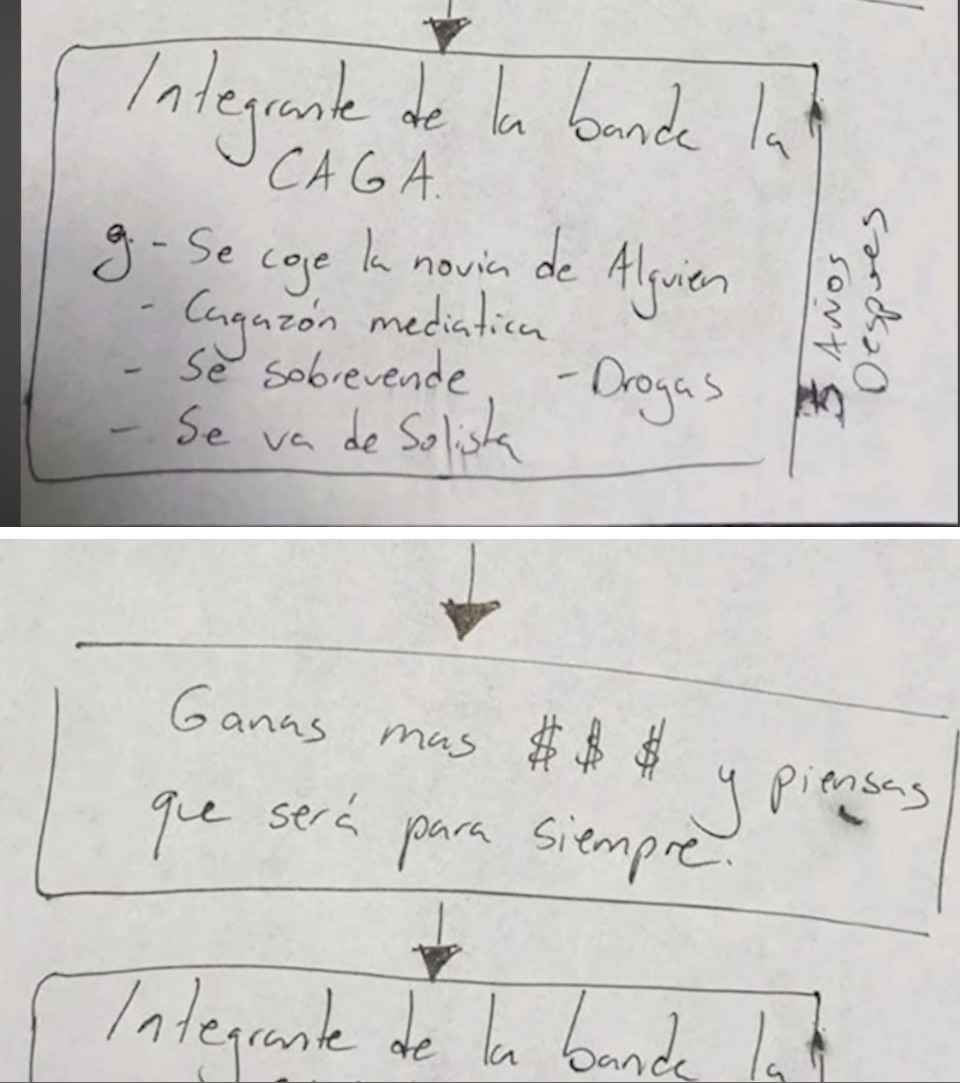 Integrante de la banda la
CAGA.
g - Se coje la novia de Alguien
- Cagazón mediatica
- Se sobrevende - Drogas
- Se va de Solista
5 Años
Despues
Ganas mas $ $ $ y piensas
que será para siempre.
Integrante de la banda la